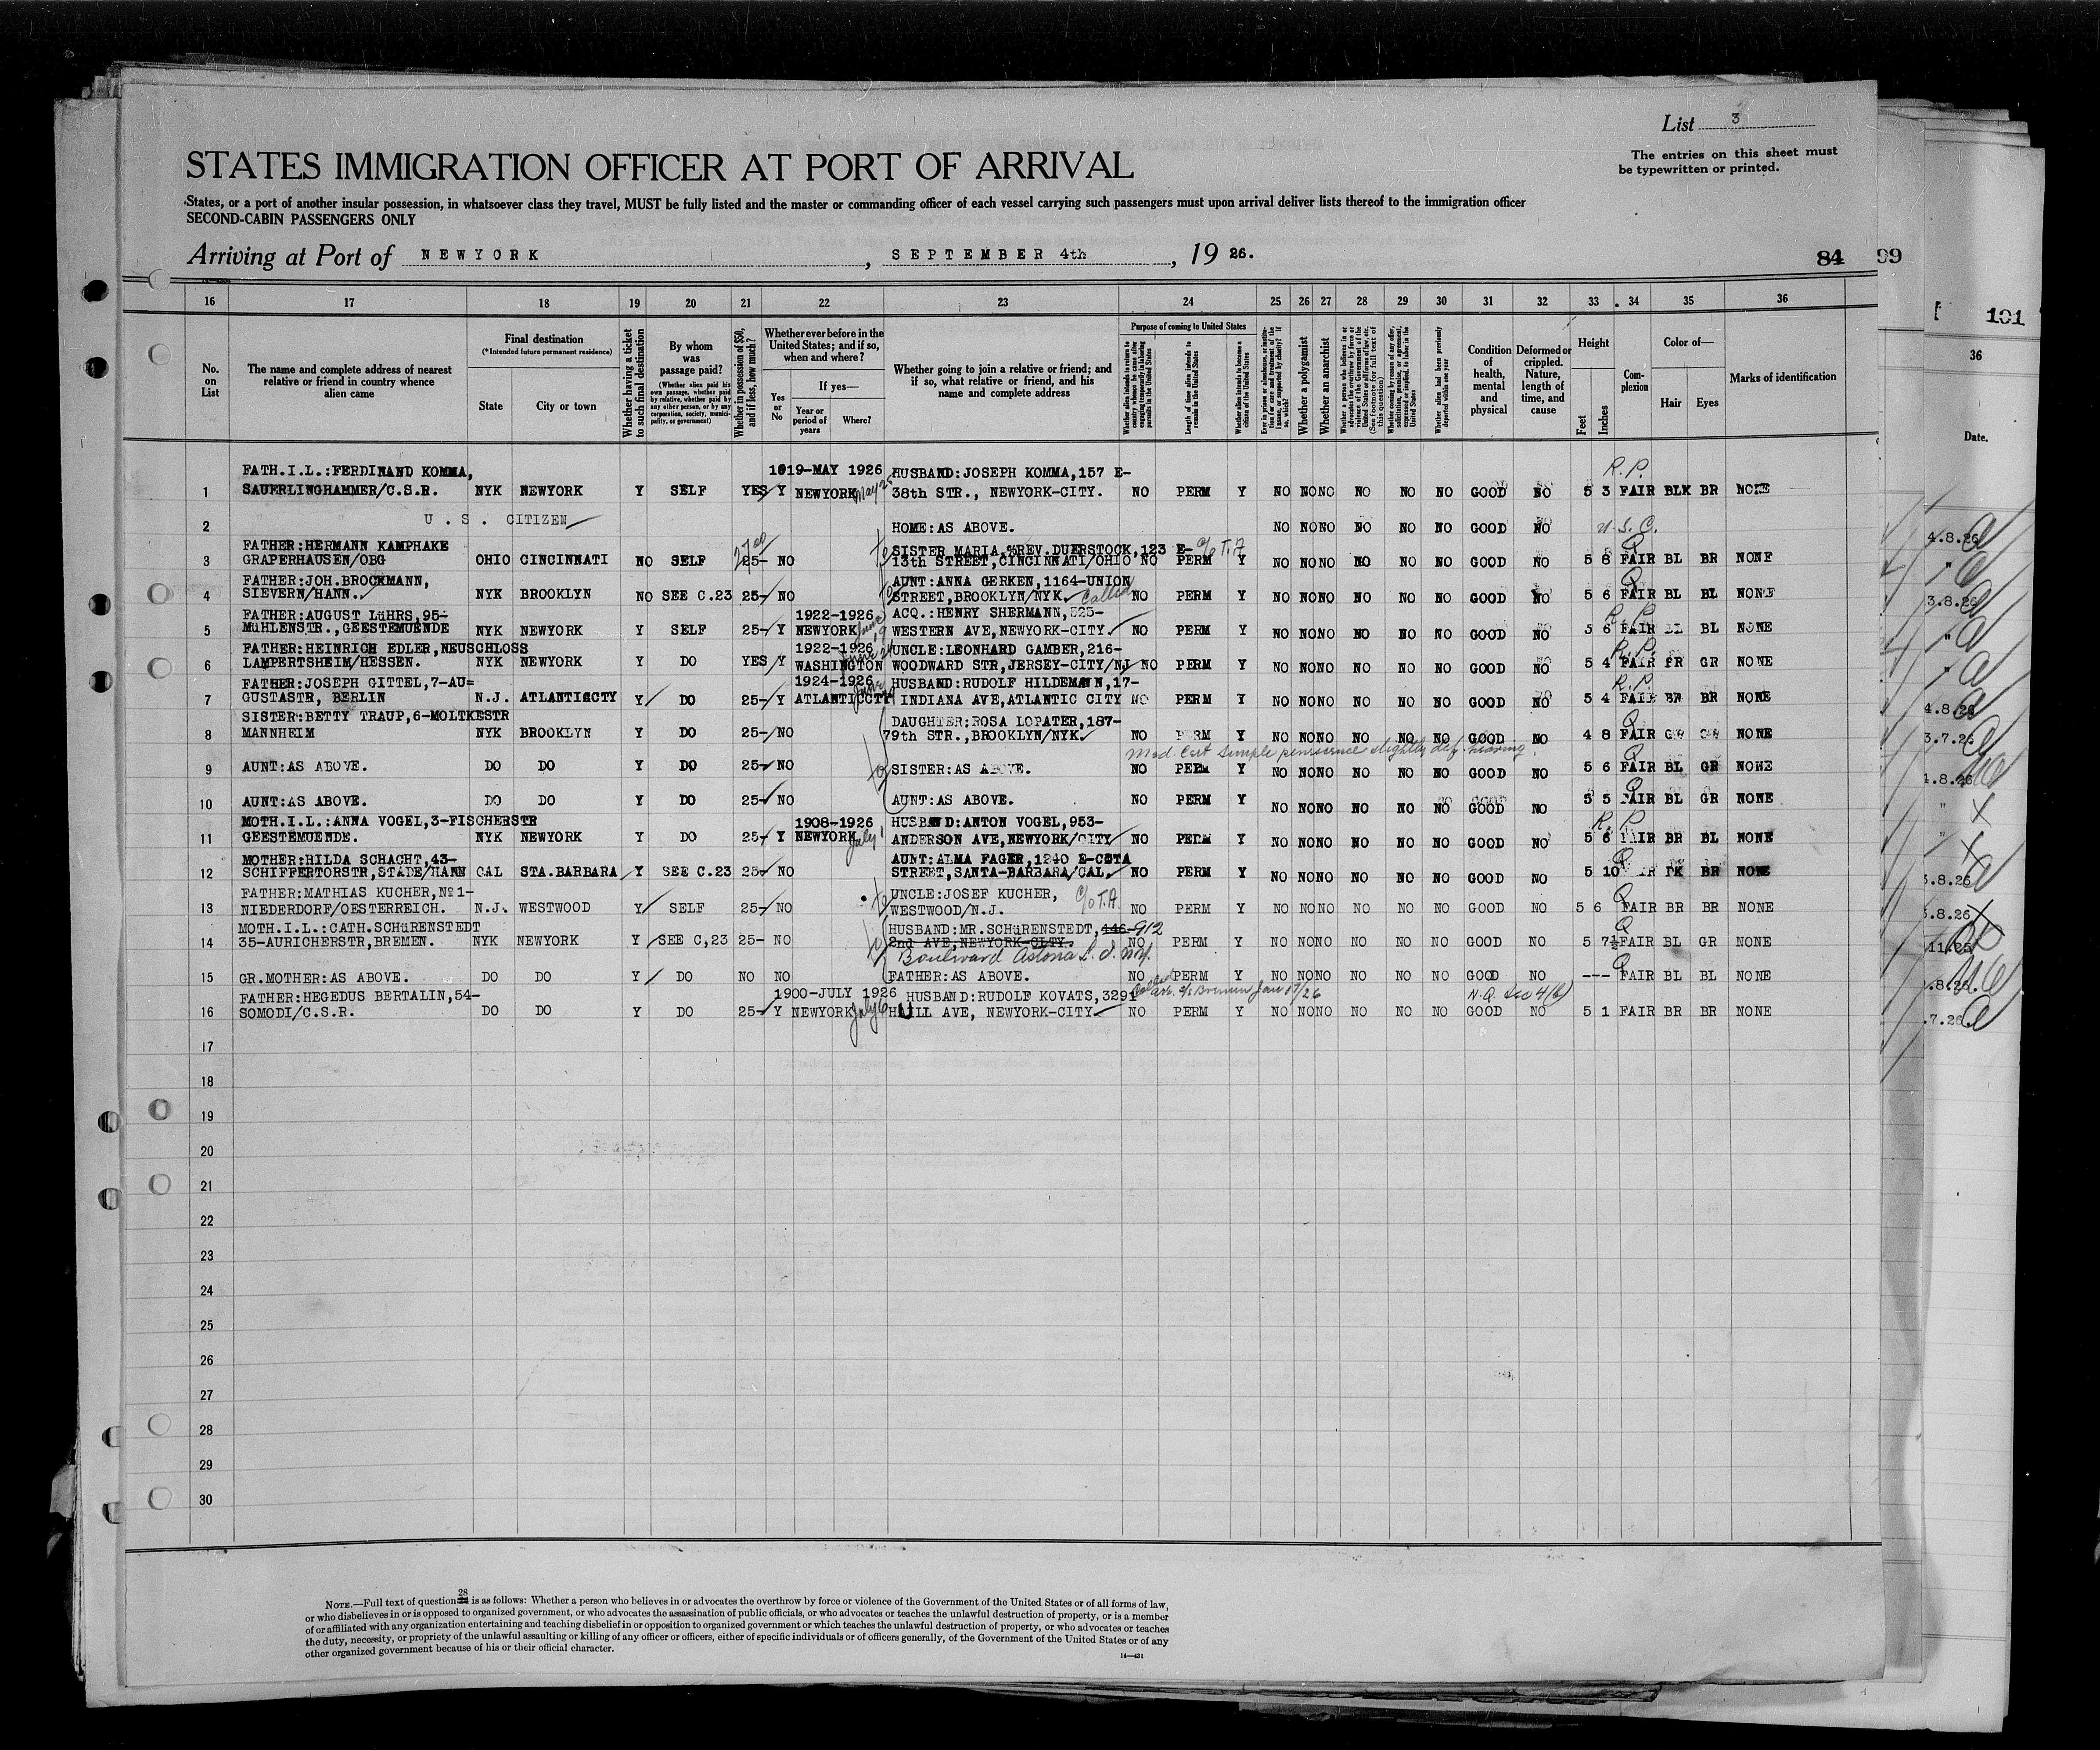 List 3
The entries on this sheet must
be typewritten or printed.
STATES IMMIGRATION OFFICER AT PORT OF ARRIVAL
States, or a port of another insular possession, in whatsoever class they travel, MUST be fully listed and the master or commanding officer of each vessel carrying such passengers must upon arrival deliver lists thereof to the immigration officer
SECOND-CABIN PASSENGERS ONLY
Arriving at Port of NEWYORK, SEPTEMBER 4th, 19 26.
84 99
101
16 17 18 19 20 21 22 23 24 25 26 27 28 29 30 31 32 33 34 35 36
No. on List
The name and complete address of nearest relative or friend in country whence alien came
Final destination
(*Intended future permanent residence)
State
City or town
Whether having a ticket to such final destination
By whom was passage paid?
(Whether alien paid his own passage, whether paid by relative, whether paid by any other person, or by any corporation, society, municipality, or government)
Whether in possession of $50, and if less, how much?
Whether ever before in the United States; and if so, when and where?
Yes or No
If yes—
Year or period of years
Where?
Whether going to join a relative or friend; and if so, what relative or friend, and his name and complete address
Purpose of coming to United States
Length of time alien intends to remain in the United States
Whether alien intends to become a citizen of the United States
Whether a polygamist
Whether an anarchist
Condition of health, mental and physical
Deformed or crippled. Nature, length of time, and cause
Height
Feet
Inches
Complexion
Color of—
Hair
Eyes
Marks of identification
36
Date.
FATH.I.L.:FERDINAND KOMMA, 1919-MAY 1926 HUSBAND:JOSEPH KOMMA,157 E- R.P.
1 SAUERLINGHAMMER/C.S.R. NYK NEWYORK Y SELF YES Y NEWYORK 38th STR., NEWYORK-CITY. NO PERM Y NO NO NO NO NO NO GOOD NO 5 3 FAIR BLK BR NONE
2 U.S. CITIZEN HOME:AS ABOVE. NO NO NO NO NO NO GOOD NO U.S.C.
FATHER:HERMANN KAMPHAKE SISTER MARIA,%REV.DUERSTOCK,123 E- c/o T.A Q
3 GRAPERHAUSEN/OBG OHIO CINCINNATI NO SELF 25- NO 13th STREET,CINCINNATI/OHIO NO PERM Y NO NO NO NO NO NO GOOD NO 5 8 FAIR BL BR NONE
FATHER:JOH.BROCKMANN, AUNT:ANNA GERKEN,1164-UNION Q
4 SIEVERN/HANN. NYK BROOKLYN NO SEE C.23 25- NO STREET,BROOKLYN/NYK. Called NO PERM Y NO NO NO NO NO NO GOOD NO 5 6 FAIR BL BL NONE
FATHER:AUGUST LüHRS,95- 1922-1926 ACQ.:HENRY SHERMANN,525- R.P.
5 MüHLENSTR.,GEESTEMUENDE NYK NEWYORK Y SELF 25- Y NEWYORK WESTERN AVE,NEWYORK-CITY. NO PERM Y NO NO NO NO NO NO GOOD NO 5 6 FAIR BL BL NONE
FATHER:HEINRICH EDLER,NEUSCHLOSS 1922-1926 UNCLE:LEONHARD GAMBER,216- R.P.
6 LAMPERTSHEIM/HESSEN. NYK NEWYORK Y DO YES Y WASHINGTON WOODWARD STR,JERSEY-CITY/NJ NO PERM Y NO NO NO NO NO NO GOOD NO 5 4 FAIR BR GR NONE
FATHER:JOSEPH GITTEL,7-AU= 1924-1926 HUSBAND:RUDOLF HILDEMANN,17- R.P.
7 GUSTASTR, BERLIN N.J. ATLANTICCTY Y DO 25- Y ATLANTICCTY INDIANA AVE,ATLANTIC CITY NO PERM Y NO NO NO NO NO NO GOOD NO 5 4 FAIR BR BR NONE
SISTER:BETTY TRAUP,6-MOLTKESTR DAUGHTER:ROSA LOPATER,187- Q
8 MANNHEIM NYK BROOKLYN Y DO 25- NO 79th STR.,BROOKLYN/NYK. NO PERM Y NO NO NO NO NO NO GOOD NO 4 8 FAIR GR GR NONE
Med. Cert slightly def. hearing
9 AUNT:AS ABOVE. DO DO Y DO 25- NO SISTER:AS ABOVE. NO PERM Y NO NO NO NO NO NO GOOD NO 5 6 FAIR BL GR NONE
10 AUNT:AS ABOVE. DO DO Y DO 25- NO AUNT:AS ABOVE. NO PERM Y NO NO NO NO NO NO GOOD NO 5 5 FAIR BL GR NONE
MOTH.I.L.:ANNA VOGEL,3-FISCHERSTR 1908-1926 HUSBAND:ANTON VOGEL,953- R.P.
11 GEESTEMUENDE. NYK NEWYORK Y DO 25- Y NEWYORK July 1 ANDERSON AVE,NEWYORK/CITY NO PERM Y NO NO NO NO NO NO GOOD NO 5 6 FAIR BR BL NONE
MOTHER:HILDA SCHACHT,43- AUNT:ALMA FAGER,1240 E-COTA Q
12 SCHIFFERTORSTR,STADE/HANN CAL STA.BARBARA Y SEE C.23 25- NO STREET,SANTA-BARBARA/CAL. NO PERM Y NO NO NO NO NO NO GOOD NO 5 10 FAIR DK BR NONE
FATHER:MATHIAS KUCHER,Nº1- UNCLE:JOSEF KUCHER, c/o T.A Q
13 NIEDERDORF/OESTERREICH. N.J. WESTWOOD Y SELF 25- NO WESTWOOD/N.J. NO PERM Y NO NO NO NO NO NO GOOD NO 5 6 FAIR BR BR NONE
MOTH.I.L.:CATH.SCHüRENSTEDT HUSBAND:MR.SCHüRENSTEDT,146- 912 Q
14 35-AURICHERSTR,BREMEN. NYK NEWYORK Y SEE C,23 25- NO 2nd AVE,NEWYORK-CITY. NO PERM Y NO NO NO NO NO NO GOOD NO 5 7½ FAIR BL GR NONE
Boulward Astoria L.I. N.Y.
15 GR.MOTHER:AS ABOVE. DO DO Y DO NO NO FATHER:AS ABOVE. NO PERM Y NO NO NO NO NO NO GOOD NO --- FAIR BL BL NONE
FATHER:HEGEDUS BERTALIN,54- 1900-JULY 1926 HUSBAND:RUDOLF KOVATS,3291 Bremen Jan 17/26 N.Q. Sec 4(b)
16 SOMODI/C.S.R. DO DO Y DO 25- Y NEWYORK July HULL AVE, NEWYORK-CITY NO PERM Y NO NO NO NO NO NO GOOD NO 5 1 FAIR BR BR NONE
17
18
19
20
21
22
23
24
25
26
27
28
29
30
NOTE.—Full text of question 28 is as follows: Whether a person who believes in or advocates the overthrow by force or violence of the Government of the United States or of all forms of law,
or who disbelieves in or is opposed to organized government, or who advocates the assassination of public officials, or who advocates or teaches the unlawful destruction of property, or is a member
of or affiliated with any organization entertaining and teaching disbelief in or opposition to organized government or which teaches the unlawful destruction of property, or who advocates or teaches
the duty, necessity, or propriety of the unlawful assaulting or killing of any officer or officers, either of specific individuals or of officers generally, of the Government of the United States or of any
other organized government because of his or their official character.
14—431